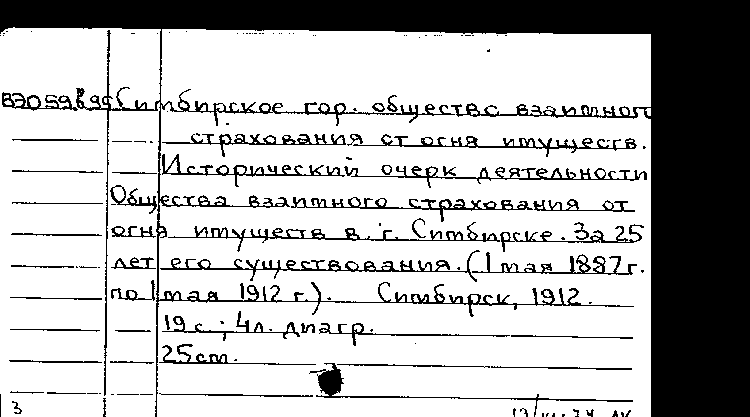 Симбирское гор. общество взаимного
страхования от огня имуществ.
Исторический очерк деятельности
Общества взаимного страхования от
огня имуществ в г. Симбирске. За 25
лет его существования. (1 мая 1887 г.
по 1 мая 1912 г.). Симбирск, 1912.
19 с.; 4 л. диагр.
25 cm.
3